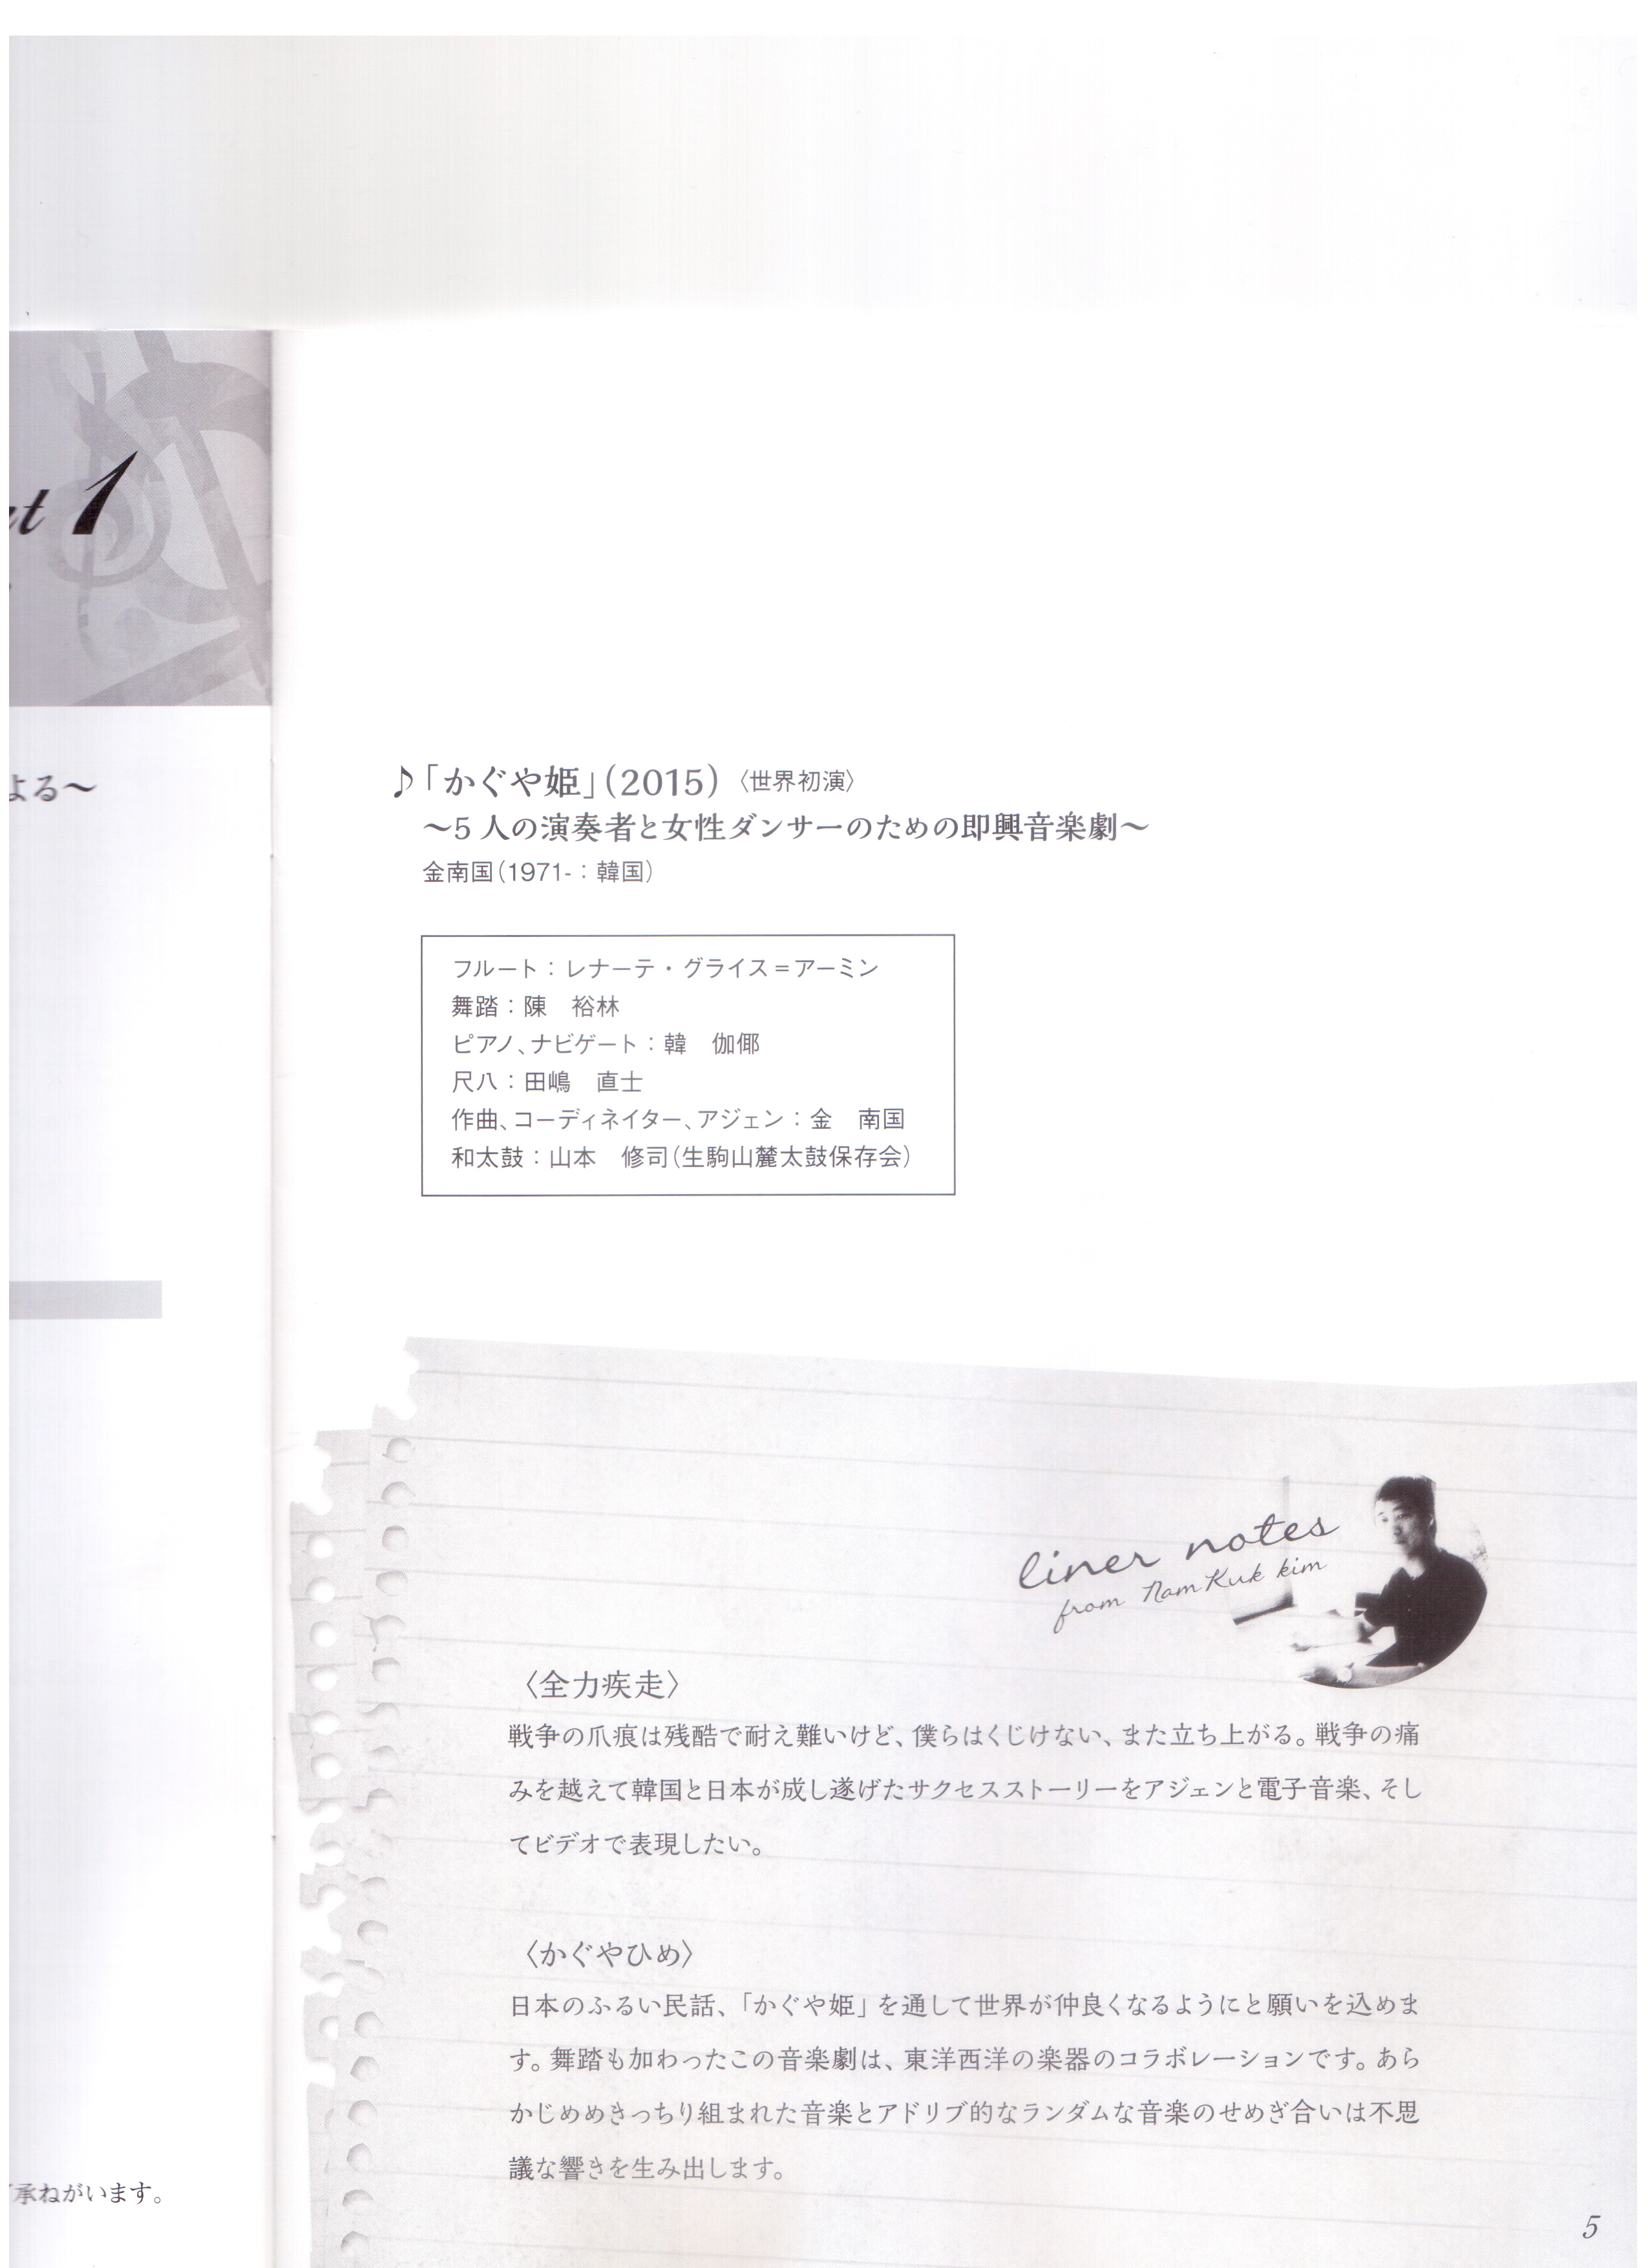 1
よる～
承ねがいます。
♪「かぐや姫」(2015)〈世界初演〉
～5人の演奏者と女性ダンサーのための即興音楽劇～
金南国(1971-：韓国)
フルート：レナーテ・グライス＝アーミン
舞踏：陳　裕林
ピアノ、ナビゲート：韓　伽倻
尺八：田嶋　直士
作曲、コーディネイター、アジェン：金　南国
和太鼓：山本　修司(生駒山麓太鼓保存会)
liner notes
from NamKuk kim
〈全力疾走〉
戦争の爪痕は残酷で耐え難いけど、僕らはくじけない、また立ち上がる。戦争の痛
みを越えて韓国と日本が成し遂げたサクセスストーリーをアジェンと電子音楽、そし
てビデオで表現したい。
〈かぐやひめ〉
日本のふるい民話、「かぐや姫」を通して世界が仲良くなるようにと願いを込めま
す。舞踏も加わったこの音楽劇は、東洋西洋の楽器のコラボレーションです。あら
かじめめきっちり組まれた音楽とアドリブ的なランダムな音楽のせめぎ合いは不思
議な響きを生み出します。
5